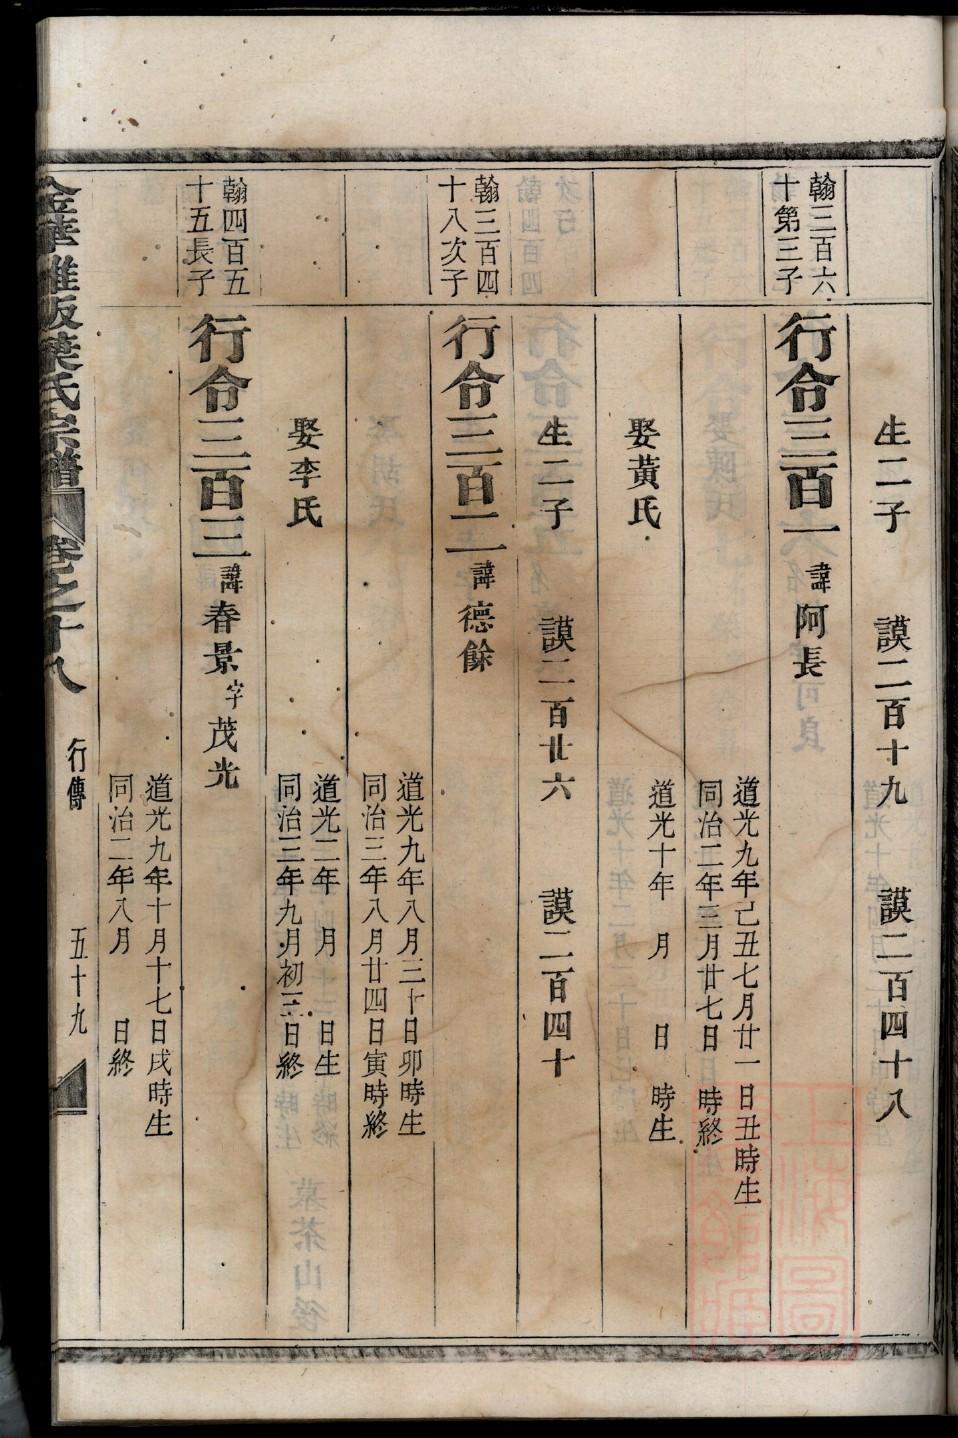 生二子 謨二百十九 謨二百四十八
翰三百六十第三子
行令三百一 諱阿長
道光九年己丑七月廿一日丑時生
同治二年三月廿七日 時終
娶黃氏
道光十年 月 日 時生
生二子 謨二百廿六 謨二百四十
翰三百四十八次子
行令三百二 諱德餘
道光九年八月三十日卯時生
同治三年八月廿四日寅時終
娶李氏
道光二年 月 日生
同治三年九月初三日終
翰四百五十五長子
行令三百三 諱春景 字茂光
道光九年十月十七日戌時生
同治二年八月 日終
金華雅畈葉氏宗譜 卷之十八 行傳 五十九